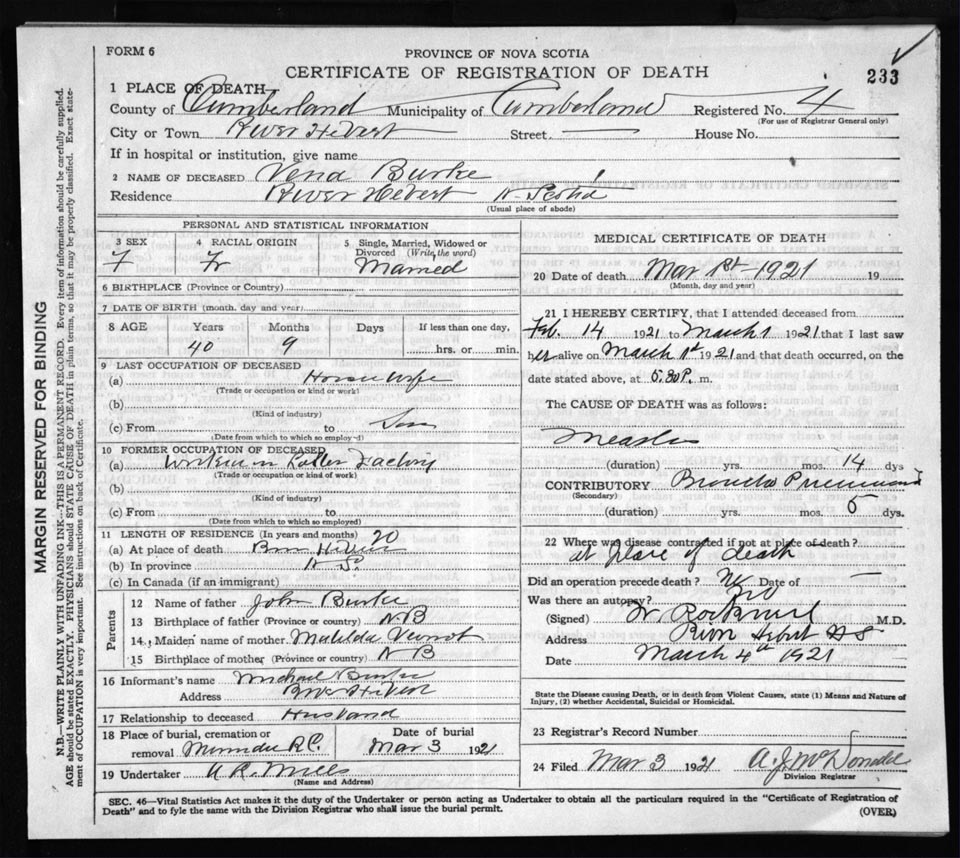 FORM 6
PROVINCE OF NOVA SCOTIA
CERTIFICATE OF REGISTRATION OF DEATH
233
1 PLACE OF DEATH
County of Cumberland Municipality of Cumberland Registered No. 4
(For use of Registrar General only)
City or Town River Hebert Street — House No.
If in hospital or institution, give name
2 NAME OF DECEASED Vena Burke
Residence River Hebert N. Scotia
(Usual place of abode)
PERSONAL AND STATISTICAL INFORMATION
3 SEX F
4 RACIAL ORIGIN Fr
5 Single, Married, Widowed or Divorced (Write the word) Married
6 BIRTHPLACE (Province or Country)
7 DATE OF BIRTH (month, day and year)
8 AGE Years Months Days If less than one day,
40 9 hrs. or min.
9 LAST OCCUPATION OF DECEASED
(a) House wife
(Trade or occupation or kind of work)
(b)
(Kind of industry)
(c) From to
(Date from which to which so employ d)
10 FORMER OCCUPATION OF DECEASED
(a) Worked in Factory
(Trade or occupation or kind of work)
(b)
(Kind of industry)
(c) From to
(Date from which to which so employed)
11 LENGTH OF RESIDENCE (In years and months) 20
(a) At place of death
(b) In province N S
(c) In Canada (if an immigrant)
Parents
12 Name of father John Burke
13 Birthplace of father (Province or country) N B
14 Maiden name of mother Matilda
15 Birthplace of mother (Province or country) N B
16 Informant's name Michael Burke
Address River Hebert
17 Relationship to deceased Husband
18 Place of burial, cremation or removal Minudie R.C. Date of burial Mar 3 1921
19 Undertaker A R Mills
(Name and Address)
MEDICAL CERTIFICATE OF DEATH
20 Date of death Mar 1st - 1921 19
(Month, day and year)
21 I HEREBY CERTIFY, that I attended deceased from
Feb. 14 1921 to March 1 1921 that I last saw
her alive on March 1st 1921 and that death occurred, on the
date stated above, at 5.30 P. m.
The CAUSE OF DEATH was as follows:
Measles
(duration) yrs. mos. 14 dys
CONTRIBUTORY Broncho Pneumonia
(Secondary)
(duration) yrs. mos. 5 dys.
22 Where was disease contracted if not at place of death?
at place of death
Did an operation precede death? No Date of —
Was there an autopsy? No
(Signed) Dr. Rockwell M.D.
Address River Hebert N S
Date March 4th 1921
State the Disease causing Death, or in death from Violent Causes, state (1) Means and Nature of
Injury, (2) whether Accidental, Suicidal or Homicidal.
23 Registrar's Record Number
24 Filed Mar 3 1921 A. J. McDonald
Division Registrar
SEC. 46—Vital Statistics Act makes it the duty of the Undertaker or person acting as Undertaker to obtain all the particulars required in the "Certificate of Registration of
Death" and to fyle the same with the Division Registrar who shall issue the burial permit.
(OVER)
MARGIN RESERVED FOR BINDING
N.B.—WRITE PLAINLY WITH UNFADING INK—THIS IS A PERMANENT RECORD. Every item of information should be carefully supplied.
AGE should be stated EXACTLY. PHYSICIANS should STATE CAUSE OF DEATH in plain terms, so that it may be properly classified. Exact state-
ment of OCCUPATION is very important. See instructions on back of Certificate.